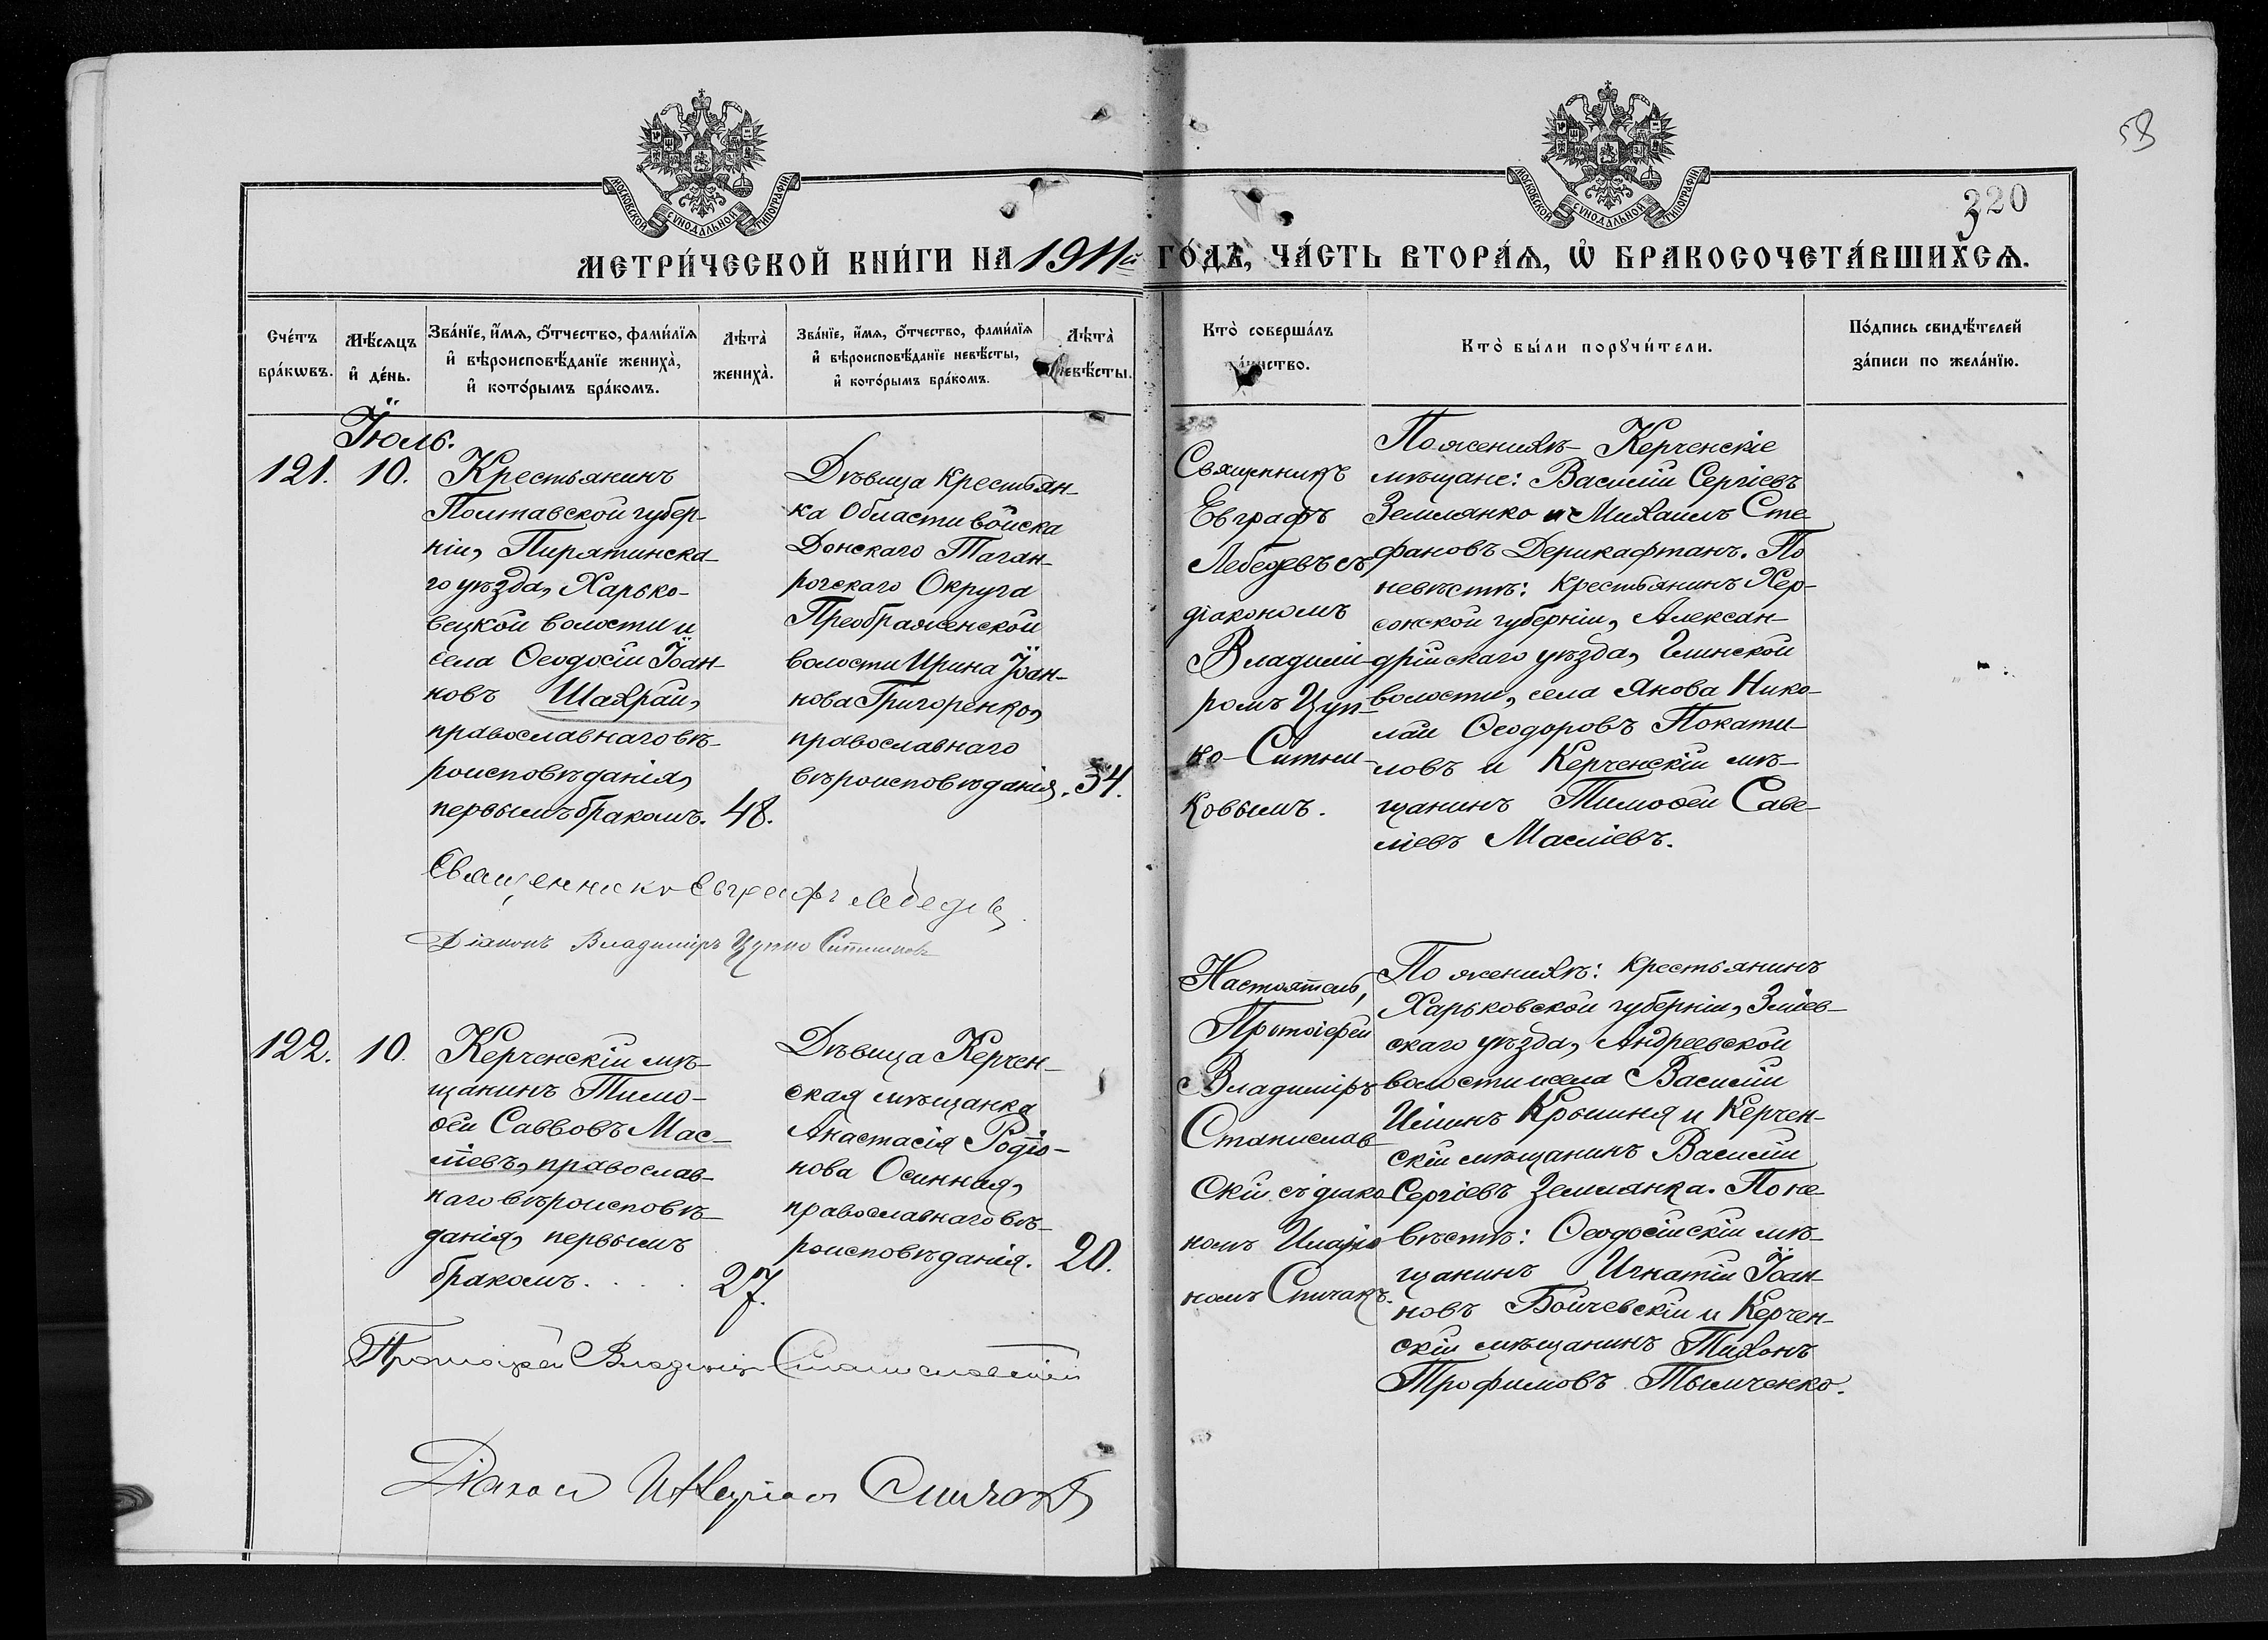 58
320
МОСКОВСКОЙ СѴНОДАЛЬНОЙ ТИПОГРАФІИ
МОСКОВСКОЙ СѴНОДАЛЬНОЙ ТИПОГРАФІИ
МЕТРИ́ЧЕСКОЙ КНИ́ГИ НА 1911й ГО́ДЪ, ЧА́СТЬ ВТОРА́Ѧ, Ѡ҆ БРАКОСОЧЕТА́ВШИХСѦ.
Сче́тъ
бра́кѡвъ.
Мѣ́сѧцъ
и҆ де́нь.
Зва́нїе, и҆́мѧ, ѻ҆́тчество, фами́лїѧ
и҆ вѣроисповѣ́данїе жениха̀,
и҆ кото́рымъ бра́комъ.
Лѣ́та
жениха̀.
Зва́нїе, и҆́мѧ, ѻ҆́тчество, фами́лїѧ
и҆ вѣроисповѣ́данїе невѣ́сты,
и҆ кото́рымъ бра́комъ.
Лѣ́та
невѣ́сты.
Кто̀ соверша́лъ
та́инство.
Кто̀ бы́ли порꙋчи́тели.
По́дпись свидѣ́телей
за́писи по жела́нїю.
Іюль.
121. 10.
Крестьянинъ
Полтавской губер-
ніи, Пирятинска-
го уѣзда, Харько-
вецкой волости и
села Ѳеодосій Іоан-
новъ Шахрай,
православнаго вѣ-
роисповѣданія,
первымъ бракомъ. 48.
Дѣвица крестьян-
ка Области войска
Донскаго Таган-
рогскаго Округа
Преображенской
волости Ирина Іоан-
нова Григоренко,
православнаго
вѣроисповѣданія. 34.
Священникъ
Евграфъ
Лебедевъ съ
діакономъ
Владимі-
ромъ Цуп-
ко-Ситни-
ковымъ.
По женихѣ Керченскіе
мѣщане: Василій Сергіевъ
Землянко и Михаилъ Сте-
фановъ Дерикафтанъ. По
невѣстѣ: крестьянинъ Хер-
сонской губерніи, Алексан-
дрійскаго уѣзда, Глинской
волости, села Янова Нико-
лай Ѳеодоровъ Покати-
ловъ и Керченскій мѣ-
щанинъ Тимоѳей Саве-
ліевъ Масліевъ.
Священникъ Евграфъ Лебедевъ
Діаконъ Владиміръ Цупко Ситниковъ
122. 10.
Керченскій мѣ-
щанинъ Тимо-
ѳей Саввовъ Мас-
ліевъ, православ-
наго вѣроисповѣ-
данія, первымъ
бракомъ. . . . 27.
Дѣвица Керчен-
ская мѣщанка
Анастасія Родіо-
нова Осинная,
православнаго вѣ-
роисповѣданія. 20.
Настоятель,
Протоіерей
Владиміръ
Станислав-
скій съ діако-
номъ Иларіо-
номъ Спичакъ.
По женихѣ: крестьянинъ
Харьковской губерніи, Зміев-
скаго уѣзда, Андреевской
волости и села Василій
Ильинъ Крышня и Керчен-
скій мѣщанинъ Василій
Сергіевъ Землянка. По не-
вѣстѣ: Ѳеодосійскій мѣ-
щанинъ Игнатій Іоан-
новъ Бойчевскій и Керчен-
скій мѣщанинъ Тихонъ
Трофимовъ Тымченко.
Протоіерей Владиміръ Станиславскій
Діаконъ Иларіонъ Спичакъ